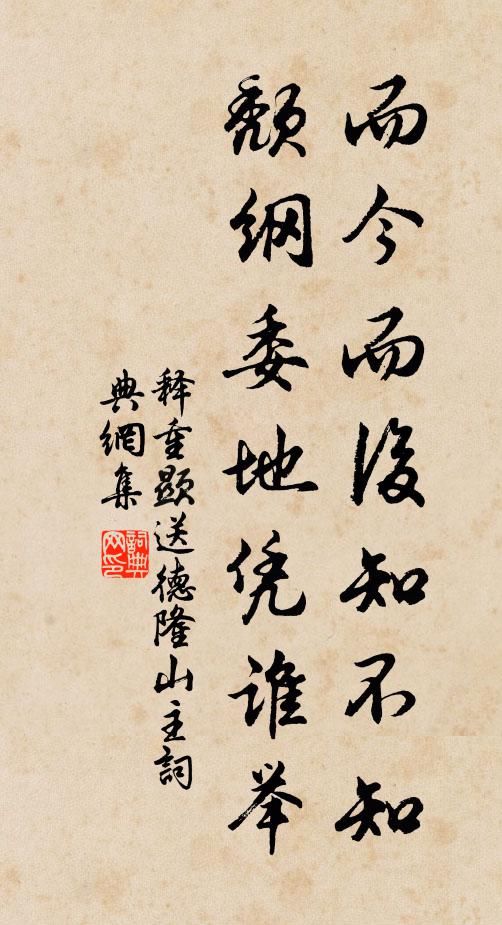 而今而后知不知
颓纲委地凭谁举
释重显送德隆山主詞
典網集
詞典网印